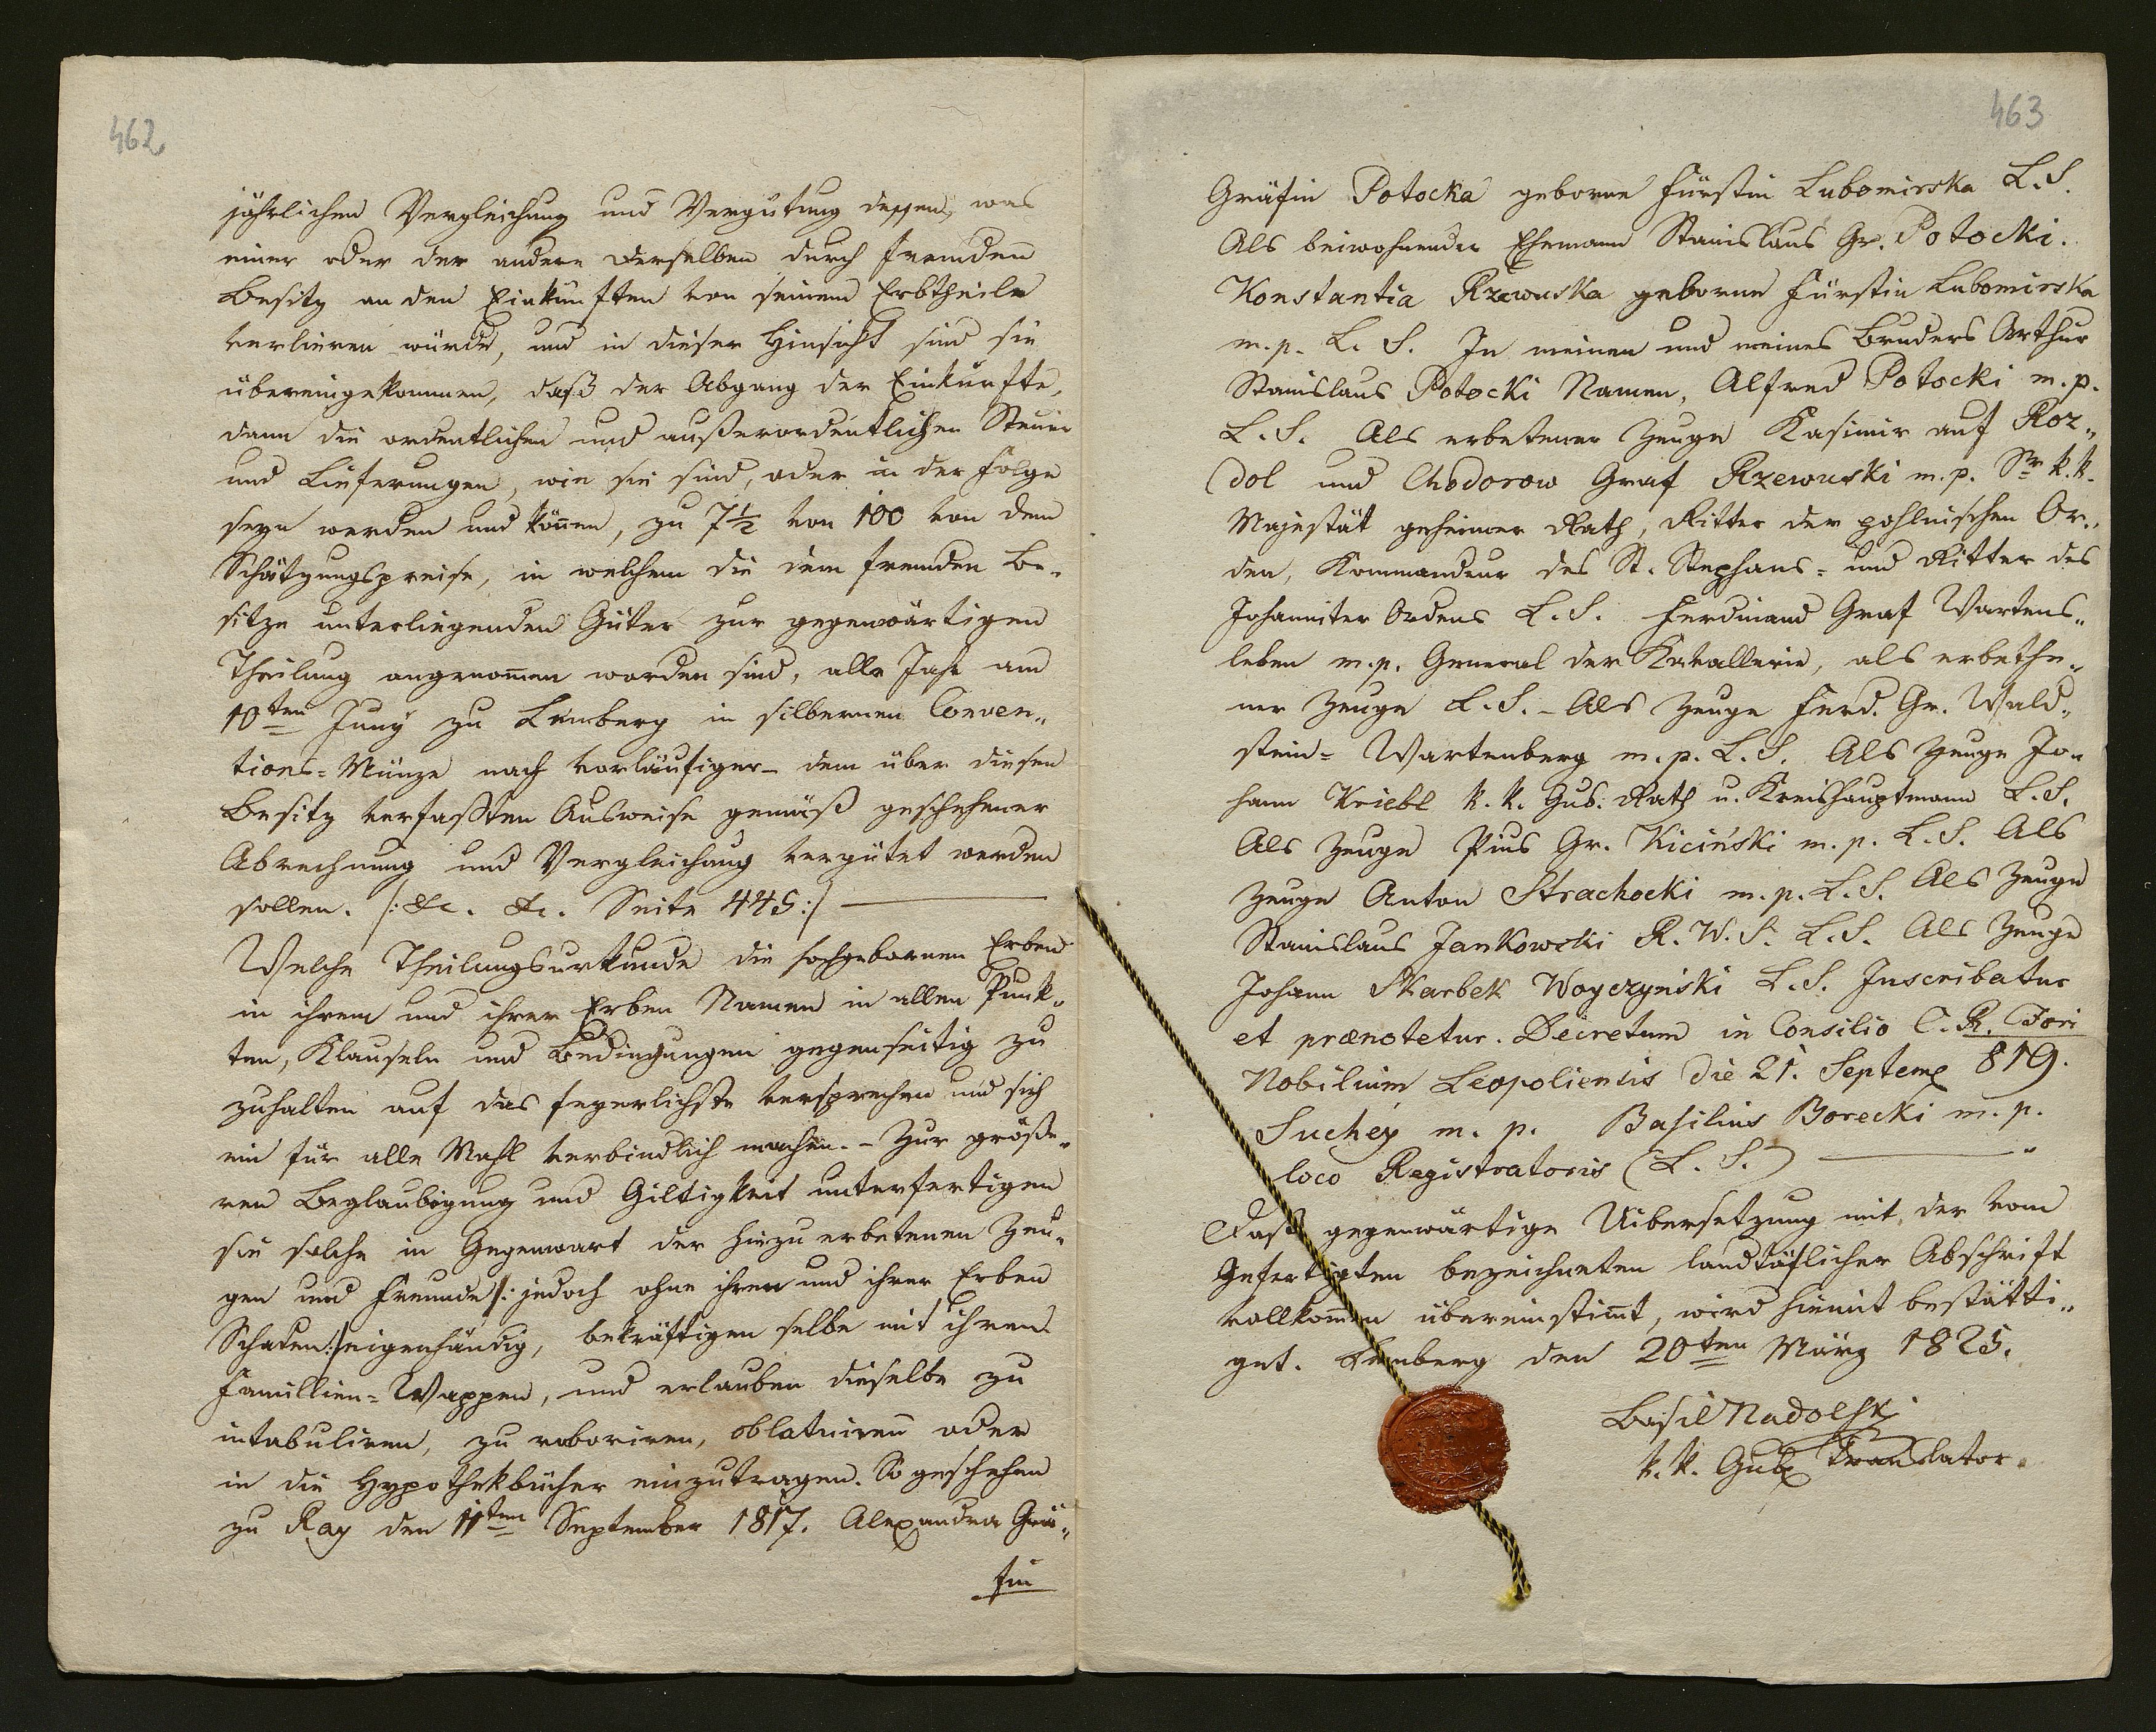 462
jährlichen Vergleichung und Vergütung dessen, was
einer oder der andere derselben durch fremden
Besitz an den Einkünften von seinem Erbtheile
verlieren würde, und in dieser Hinsicht sind sie
übereingekommen, daß der Abgang der Einkünfte,
dann die ordentlichen und außerordentlichen Steuer
und Lieferungen, wie sie sind, oder in der Folge
seyn werden und können, zu 7½ von 100 von dem
Schätzungspreise, in welchem die dem fremden Be-
sitze unterliegenden Güter zur gegenwärtigen
Theilung angenommen worden sind, alle Jahr am
10ten Juny zu Lemberg in silbernen Conven-
tions-Münze nach vorläufiger - dem über diesen
Besitz verfaßten Ausweise gemäß geschehener
Abrechnung und Vergleichung vergütet werden
sollen. /: &c. &c. Seite 445 :/
Welche Theilungsurkunde die hochgebornen Erben
in ihrem und ihrer Erben Namen in allen Punk-
ten, Klauseln und Bedingungen gegenseitig zu
zuhalten auf das feyerlichste versprechen und sich
ein für alle Mahl verbindlich machen. - Zur größe-
ren Beglaubigung und Giltigkeit unterfertigen
sie solche in Gegenwart der hiezu erbetenen Zeu-
gen und Freunde /: jedoch ohne ihren und ihrer Erben
Schaden :/ eigenhändig, bekräftigen selbe mit ihren
Famillien-Wappen, und erlauben dieselbe zu
intabuliren, zu roboriren, oblatuiren oder
in die Hypothekbücher einzutragen. So geschehen
zu Ray den 11ten September 1817. Alexandra Grä-
fin
463
Gräfin Potocka geborne Fürstin Lubomirska L.S.
Als beiwohnender Ehemann Stanislaus Gr. Potocki.
Konstantia Rzewuska geborne Fürstin Lubomirska
m.p. L.S. In meinen und meines Bruders Arthur
Stanislaus Potocki Namen, Alfred Potocki m.p.
L.S. Als erbetener Zeuge Kasimir auf Roz-
dol und Chodorow Graf Rzewuski m.p. Sr k.k.
Majestät geheimer Rath, Ritter der pohlnischen Or-
den, Kommandeur des St. Stephans- und Ritter des
Johanniter Ordens L.S. Ferdinand Graf Wartens-
leben m.p. General der Kavallerie, als erbethe-
ner Zeuge L.S. - Als Zeuge Ferd. Gr. Wald-
stein-Wartenberg m.p. L.S. Als Zeuge Jo-
hann Kriebl k.k. Gub: Rath u. Kreishauptmann L.S.
Als Zeuge Pius Gr. Kiciński m.p. L.S. Als
Zeuge Anton Strachocki m.p. L.S. Als Zeuge
Stanislaus Jankowski R.W.S. L.S. Als Zeuge
Johann Skarbek Woyczyński L.S. Inscribatur
et prænotetur. Decretum in Consilio C.R. Fori
Nobilium Leopoliensis die 21. Septemb 819.
Suchey m.p. Basilius Borecki m.p.
loco Registratoris (L.S.)
Daß gegenwärtige Uibersetzung mit der vom
Gefertigten bezeichneten landtäflicher Abschrift
vollkommen übereinstimt, wird hiemit bestätti-
get. Lemberg den 20ten März 1825.
Basil Nadolski
k.k. Gub Translator.